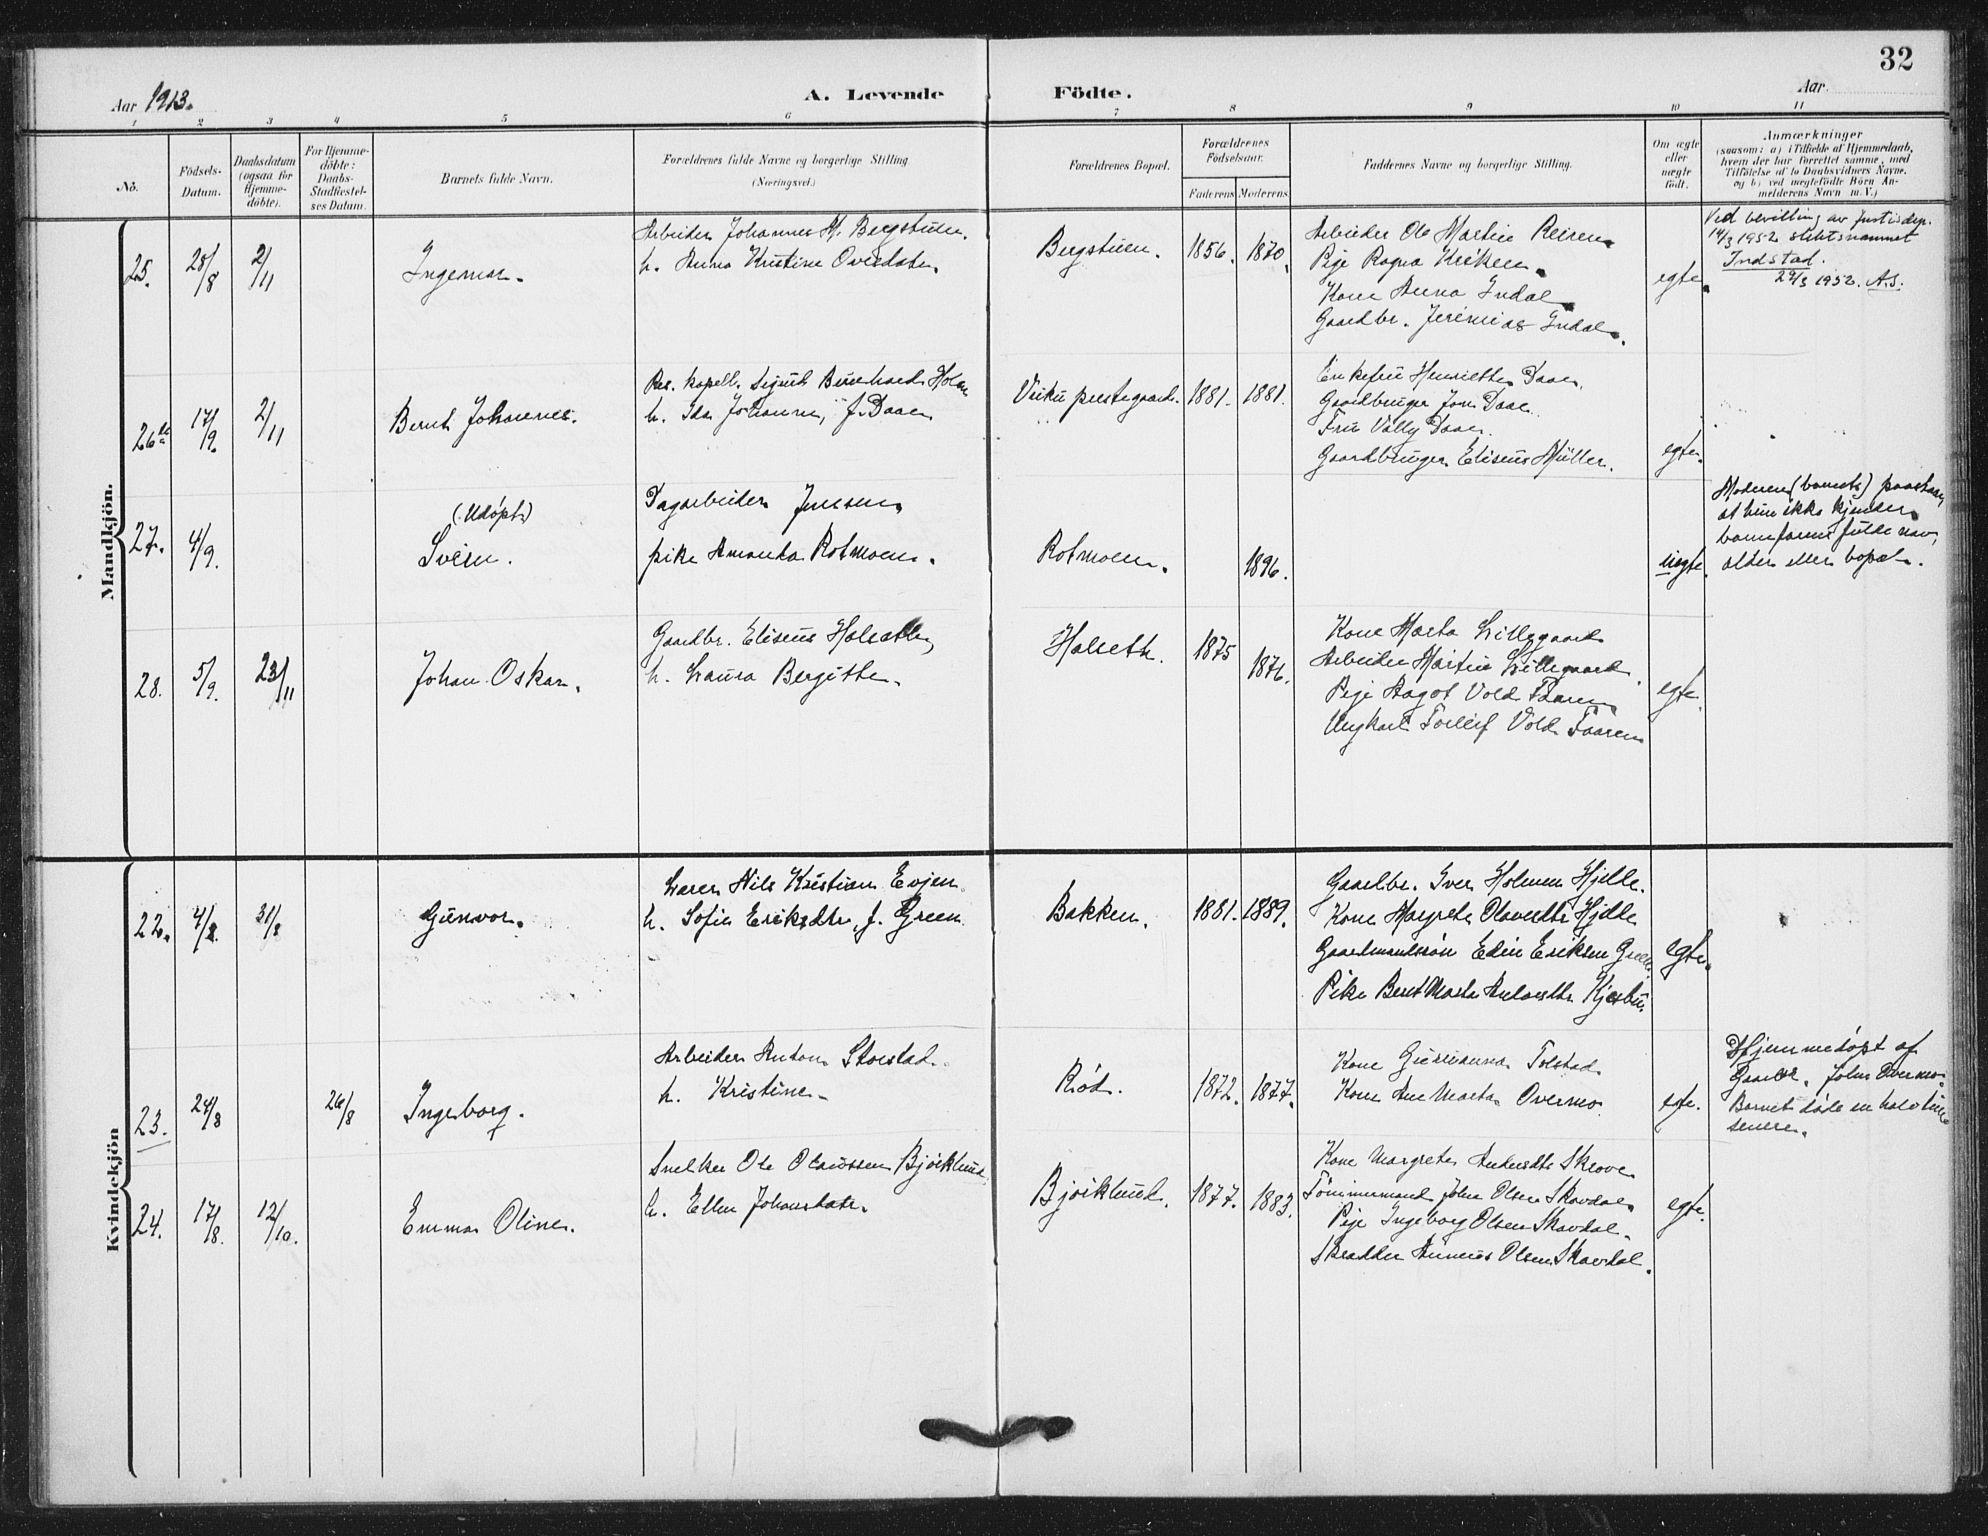 32
Aar 1913.
A. Levende Födte.
Aar
1 2 3 4 5 6 7 8 9 10 11
No.
Födsels-
Datum.
Daabsdatum
(ogsaa for
Hjemme-
döbte).
For Hjemme-
döbte:
Daabs-
Stadfæstel-
ses Datum.
Barnets fulde Navn.
Forældrenes fulde Navne og borgerlige Stilling
(Næringsvei.)
Forældrenes Bopæl.
Forældrenes
Födselsaar.
Faderens Moderens
Faddernes Navne og borgerlige Stilling.
Om ægte
eller
uægte
födt.
Anmærkninger
(saasom: a) i Tilfælde af Hjemmedaab,
hvem der har forrettet samme, med
Tilföielse af to Daabsvidners Navne,
og b) ved uægtefödte Börn An-
melderens Navn m. V.)
Mandkjön.
25.
25/8
2/11
Ingemar.
Arbeider Johannes M. Bergstuen.
h. Anna Kristine Ovesdatr.
Bergstuen.
1856.
1870.
Arbeider Ole Martin Reiren
Pige Ragna
Kone Anna Indal
Gaardbr. Jeremias Indal.
egte.
Ved bevilling av Justisdep.
14/3 1952 slektsnamnet
Indstad.
29/3 1952. A.S.
26
17/9.
2/11
Bernt Johannes.
Res. kapell. Sigurd Bernhard Holm
h. Ida Johanne, f. Daae
prestegaard.
1881.
1881.
Enkefru Henriette Daae.
Gaardbruger Jon Daae
Fru Vally Daae.
Gaardbruger Eliseus Müller.
egte.
27.
4/9.
(Udöpt)
Svein.
Dagarbeider Jensen
pike Amanda Rotmoen.
Rotmoen.
1896.
uegte.
Moderen (barnets) paastaar,
at hun ikke kjender
barnefarens fulde navn,
alder eller bopæl.
28.
5/9.
23/11
Johan Oskar.
Gaardbr. Eliseus Halseth
h. Laura Bergitte.
Halseth.
1875
1876.
Kone Marta Lillegaard
Arbeider Martin Lillegaard.
Pige Aagot Vold Faaren
Ungkarl Torleif Vold Faaren
egte.
Kvindekjön
22.
4/8.
31/8
Gunvor.
Lærer Nils Kristian Evjen.
h. Sofie Eriksdtr, f. Green
Bakken.
1881.
1889.
Gaardbr. Iver Holmen Hjelle.
Kone Margrete Olavsdtr Hjelle
Gaardmandssön Edin Eriksen
Pike Beret Marta
egte.
23.
24/8
26/8
Ingeborg.
Arbeider Anton Storstad.
h. Kristine.
Röd.
1872.
1877.
Kone Tolstad
Kone Ane Marta Overmo.
egte.
Hjemmedöpt af
Gaardbr. John Overmo.
Barnet döde en halv time
senere.
24.
17/8.
12/10.
Emma Oline.
Snekker Ole Olaussen Björklund
h. Ellen Johansdatr.
Björklund.
1877.
1883.
Kone Margrete Skrove
Tömmermand John Olsen Skavdal.
Pige Ingeborg Olsen Skavdal.
Skrædder Olsen Skavdal.
egte.